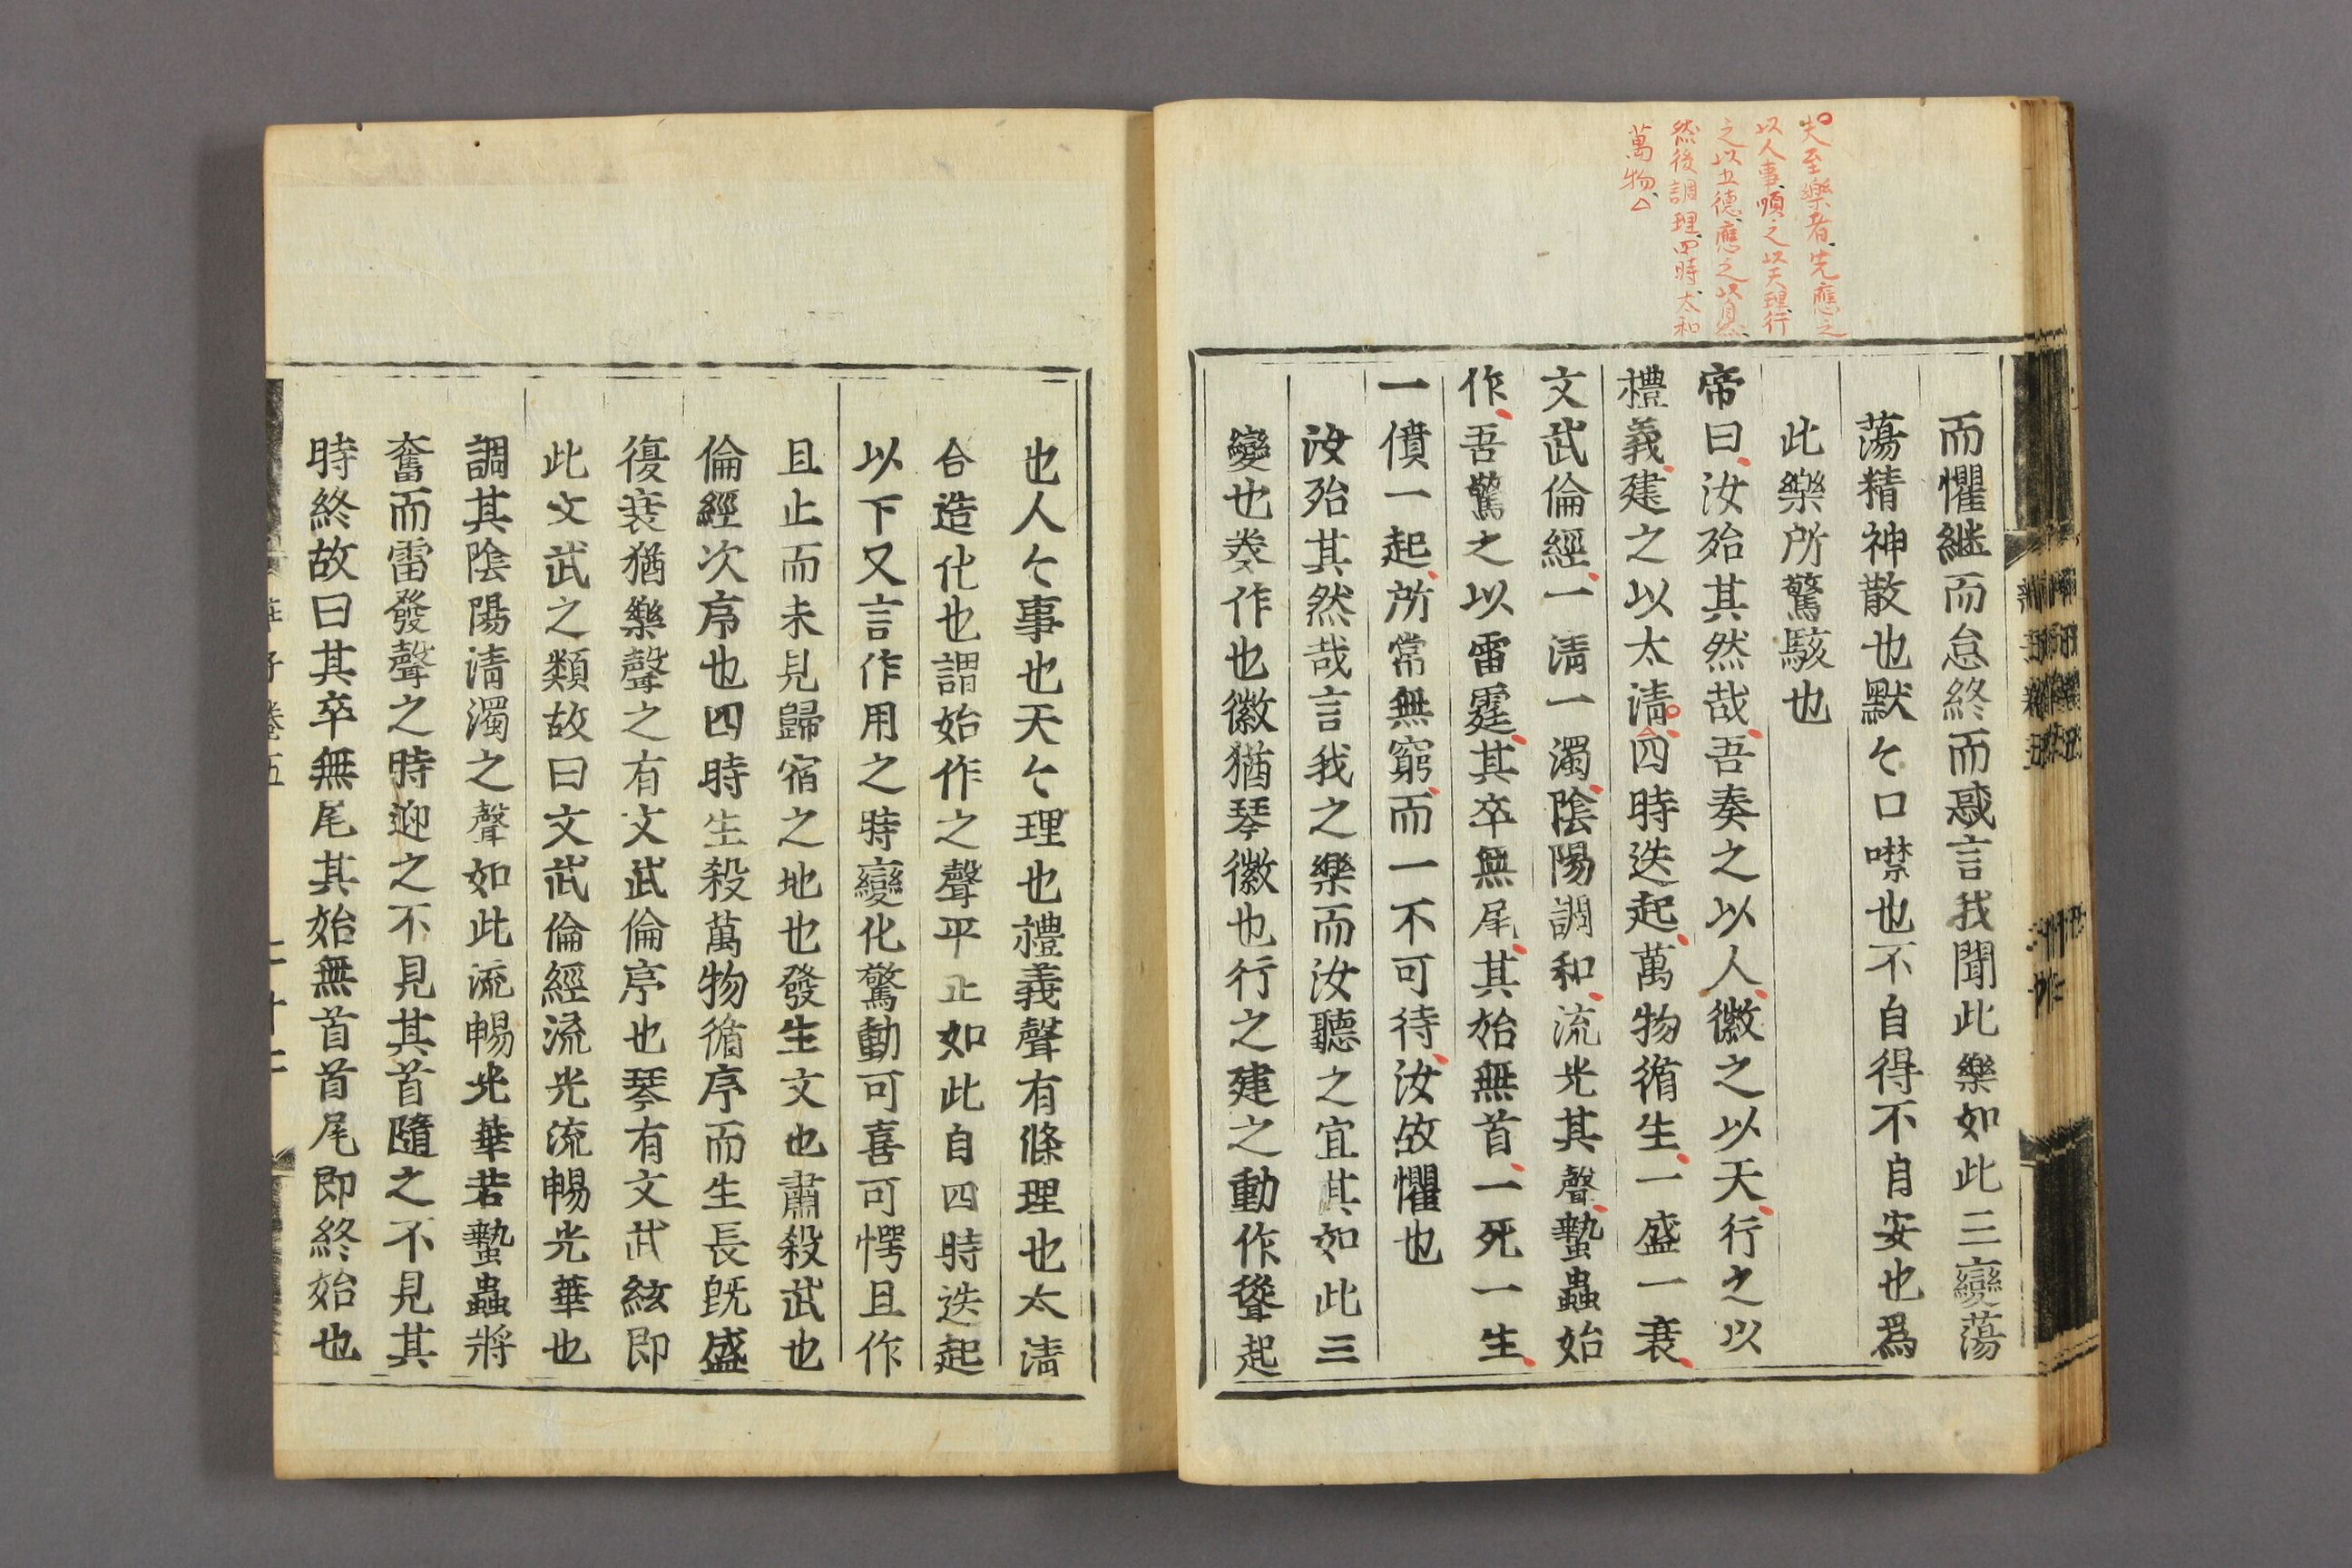 夫至樂者先應之
以人事順之以天理行
之以五德應之以自然
然後調理四時太和
萬物
而懼繼而怠終而惑言我聞此樂如此三變蕩
蕩精神散也默々口噤也不自得不自安也爲
此樂所驚駭也
帝曰汝殆其然哉吾奏之以人徽之以天行之以
禮義建之以太清四時迭起萬物循生一盛一衰
文武倫經一清一濁陰陽調和流光其聲蟄蟲始
作吾驚之以雷霆其卒無尾其始無首一死一生
一僨一起所常無窮而一不可待汝故懼也
汝殆其然哉言我之樂而汝聽之宜其如此三
變也奏作也徽猶琴徽也行之建之動作聲起
也人々事也天々理也禮義聲有條理也太清
合造化也謂始作之聲平正如此自四時迭起
以下又言作用之時變化驚動可喜可愕且作
且止而未見歸宿之地也發生文也肅殺武也
倫經次序也四時生殺萬物循序而生長旣盛
復衰猶樂聲之有文武倫序也琴有文武絃即
此文武之類故曰文武倫經流光流暢光華也
調其陰陽清濁之聲如此流暢光華若蟄蟲將
奮而雷發聲之時迎之不見其首隨之不見其
時終故曰其卒無尾其始無首首尾即終始也